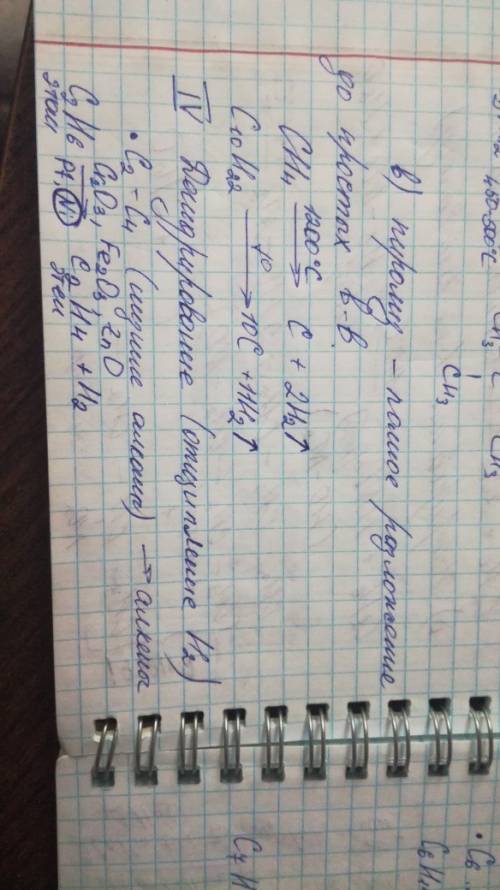 CH₃ C CH₃
CH₃
в) пиролиз – полное разложение
до простых в-в
CH₄ 1200°C → C + 2H₂↑
C₁₀H₂₂ t° → 10C + 11H₂↑
IV Дегидрирование (отщипление H₂)
• C₂ – C₄ (низшие алканы) → алкены
Cr₂O₃, Fe₂O₃, ZnO
C₂H₆ → C₂H₄ + H₂
этан Pt, Ni этен
• C₆
C₆H₁
C₇H